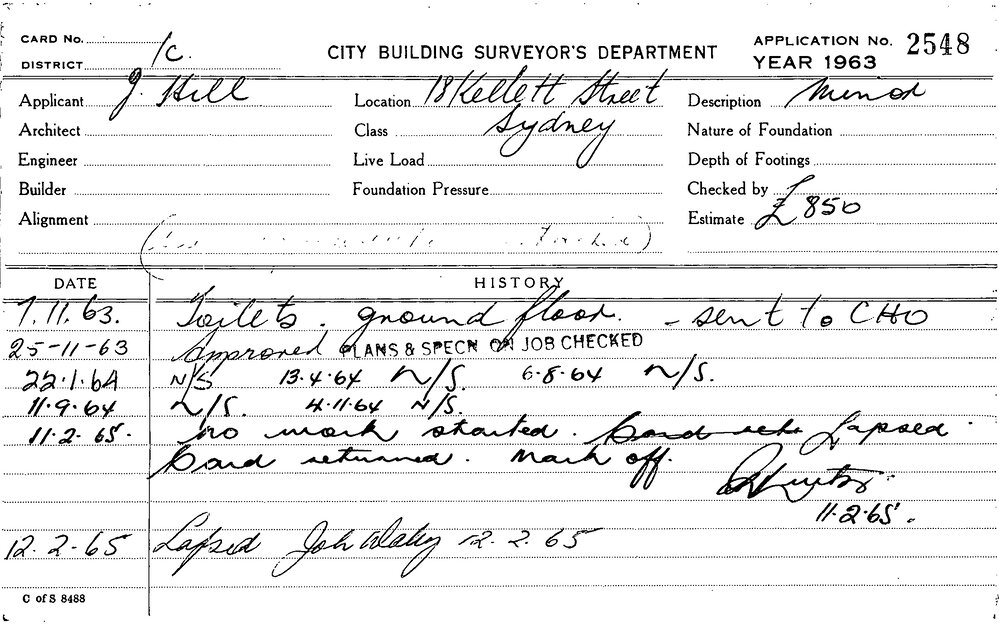 CARD No. 1C.
DISTRICT
CITY BUILDING SURVEYOR'S DEPARTMENT
APPLICATION No. 2548
YEAR 1963
Applicant J. Hill Location 18 Kellett Street Description Minor
Architect Class Sydney Nature of Foundation
Engineer Live Load Depth of Footings
Builder Foundation Pressure Checked by
Alignment Estimate £850
DATE HISTORY
7.11.63. Toilets. ground floor. - sent to CHO
25-11-63 Approved PLANS & SPECN ON JOB CHECKED
22.1.64 N/S 13.4.64 N/S. 6.8.64 N/S.
11.9.64 N/S. 4.11.64 N/S.
11.2.65. No work started. Lapsed.
Card returned. Mark off.
11.2.65.
12.2.65 Lapsed 12.2.65
C of S 8488